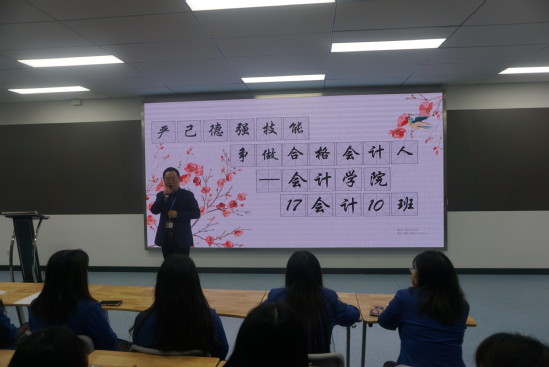 严己德强技能
争做合格会计人
—会计学院
17会计10班